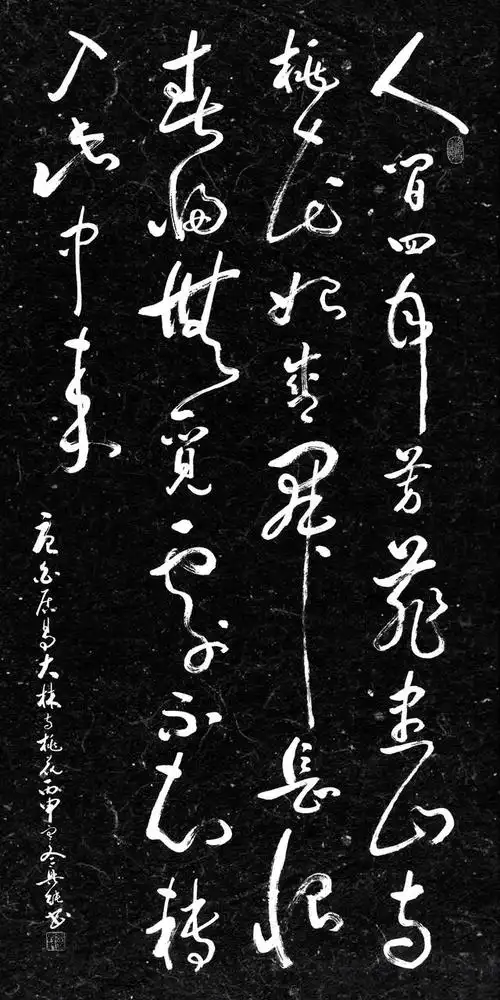 人間四月芳菲盡山寺
桃花始盛開長恨
春歸無覓處不知轉
入此中來
唐白居易大林寺桃花丙申冬書